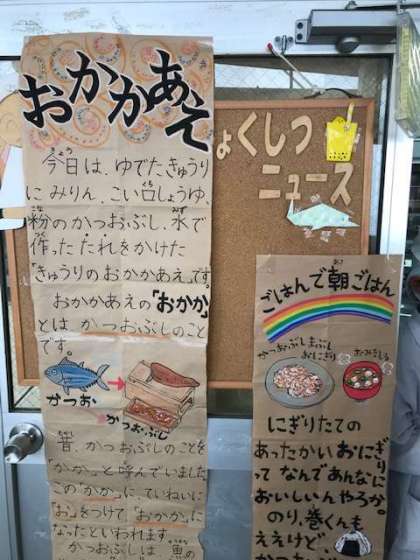 おかかあえ
今日は、ゆでたきゅうり
にみりん、こい口しょうゆ、
粉のかつおぶし、水で
作ったたれをかけた
「きゅうりのおかかあえ」です。
おかかあえの「おかか」
とは かつおぶしのこと
です。
かつお
かつおぶし
昔、かつおぶしのことを
「かか」と呼んでいました
この「かか」に、ていねいに
「お」をつけて、「おかか」に
なったといわれます。
かつおぶしは 魚の
ょくしつ
ニュース
ごはんで朝ごはん
かつおぶしまぶし
おにぎり
おみそしる
にぎりたての
あったかいおにぎり
って なんであんなに
おいしいんやろか。
のり、巻くんも
ええけど